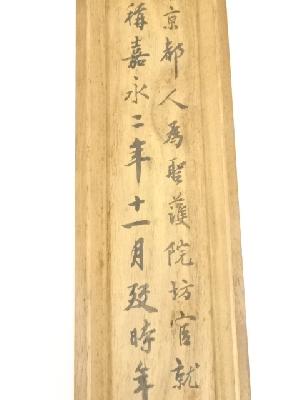 京都人為聖護院坊官就
稱嘉永二年十一月歿時年